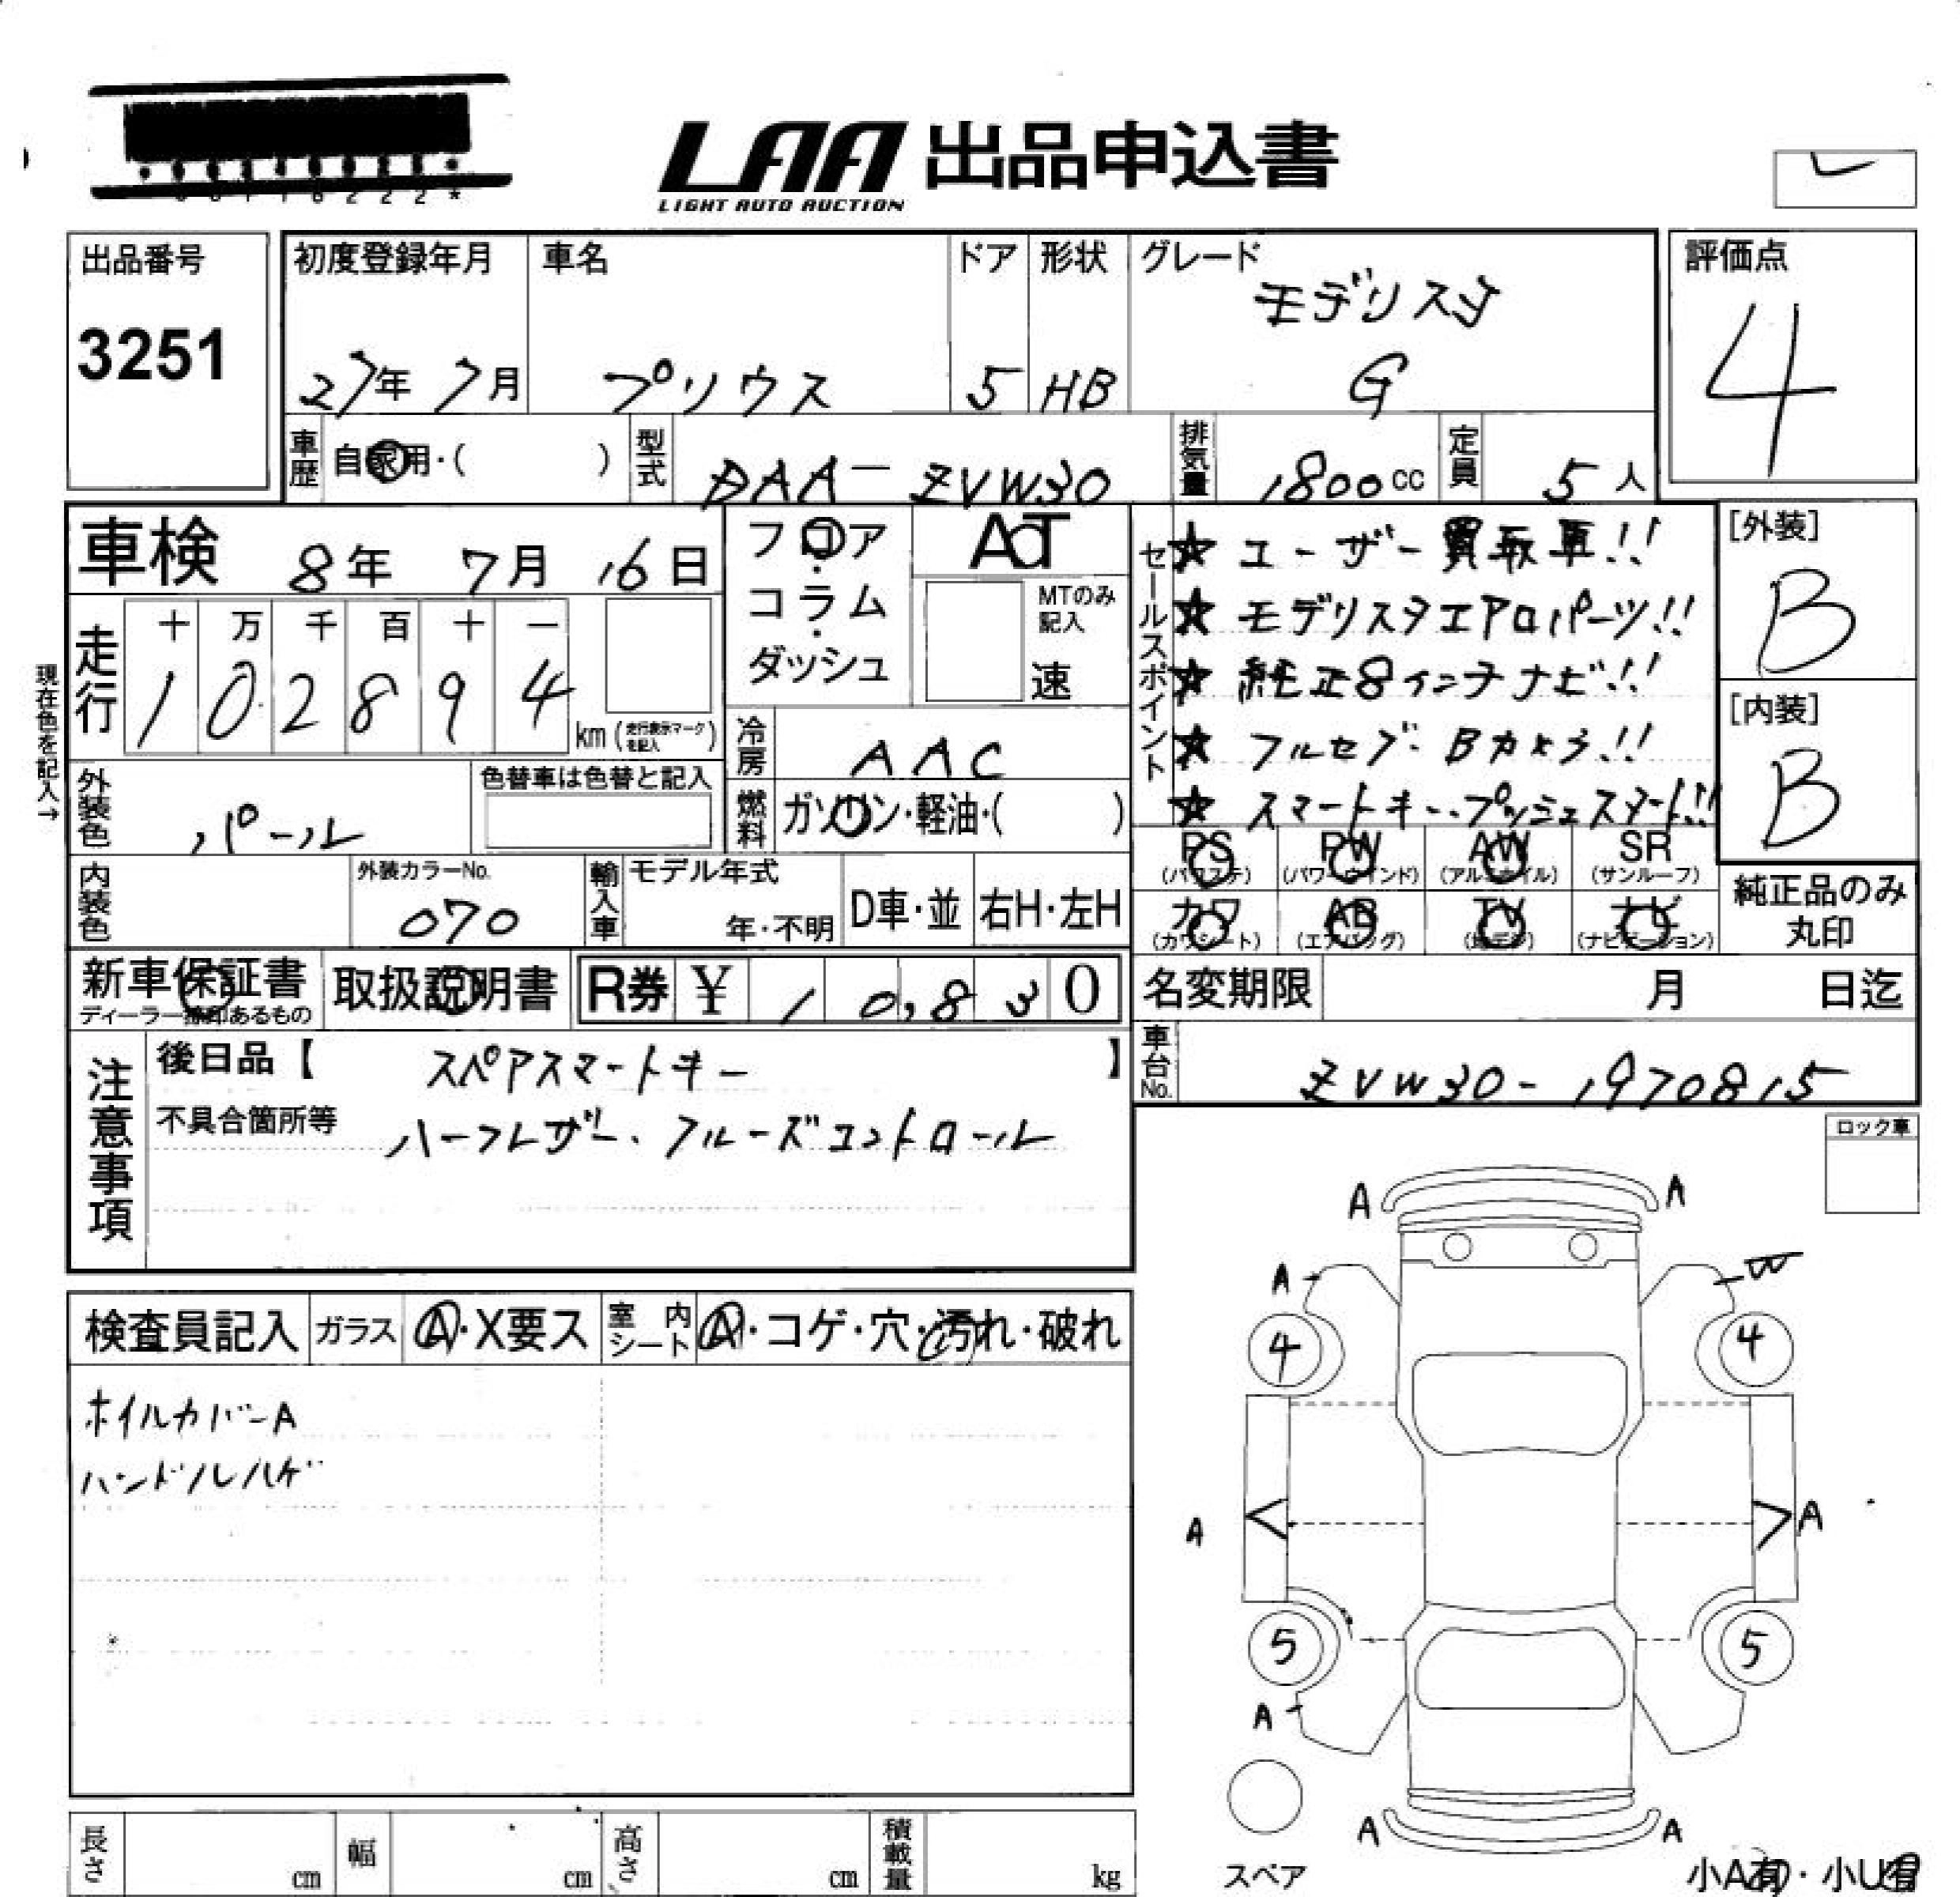 LAA 出品申込書
LIGHT AUTO AUCTION
出品番号
3251
初度登録年月
27年 7月
車名
プリウス
ドア
5
形状
HB
グレード
モデリスタ
G
評価点
4
車歴
自家用・( )
型式
DAA-ZVW30
排気量
1800cc
定員
5人
車検 8年 7月 16日
フロア・コラム・ダッシュ
AT
MTのみ記入
速
セールスポイント
★ ユーザー買取車!!
★ モデリスタエアロパーツ!!
★ 純正8インチナビ!!
★ フルセグ・Bカメラ!!
★ スマートキー・プッシュスタート!!
[外装]
B
[内装]
B
現在色を記入→
走行
十 万 千 百 十 一
1 0 2 8 9 4
km (走行表示マークを記入)
冷房
AAC
外装色
パール
色替車は色替と記入
燃料
ガソリン・軽油・( )
PS (パワステ)
PW (パワーウインド)
AW (アルミホイル)
SR (サンルーフ)
内装色
外装カラーNo.
070
輸入車
モデル年式
年・不明
D車・並
右H・左H
カワ (カワシート)
AB (エアバッグ)
TV (地デジ)
ナビ (ナビゲーション)
純正品のみ丸印
新車保証書
ディーラー捺印あるもの
取扱説明書
R券 ¥ 1 0,8 3 0
名変期限 月 日迄
注意事項
後日品【 スペアスマートキー 】
不具合箇所等
ハーフレザー、クルーズコントロール
車台No.
ZVW30-1970815
ロック車
検査員記入
ガラス
A・X要ス
室内シート
A・コゲ・穴・汚れ・破れ
ホイルカバーA
ハンドルハゲ
A A
A W
4 4
A A
5 5
A
A A
スペア
小A有・小U有
長さ cm
幅 cm
高さ cm
積載量 kg